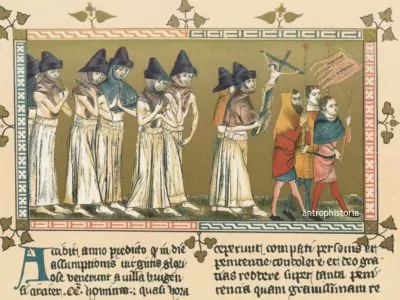 antrophistoria
Accidit anno predicto q in die
assumptionis virginis glorio
se venerunt a villa brugen
si circiter CC homines quasi hora
ceperunt compati personis et
penitentie condolere et deo gra
tias reddere super tanta peni
tencia quam gravissimam re